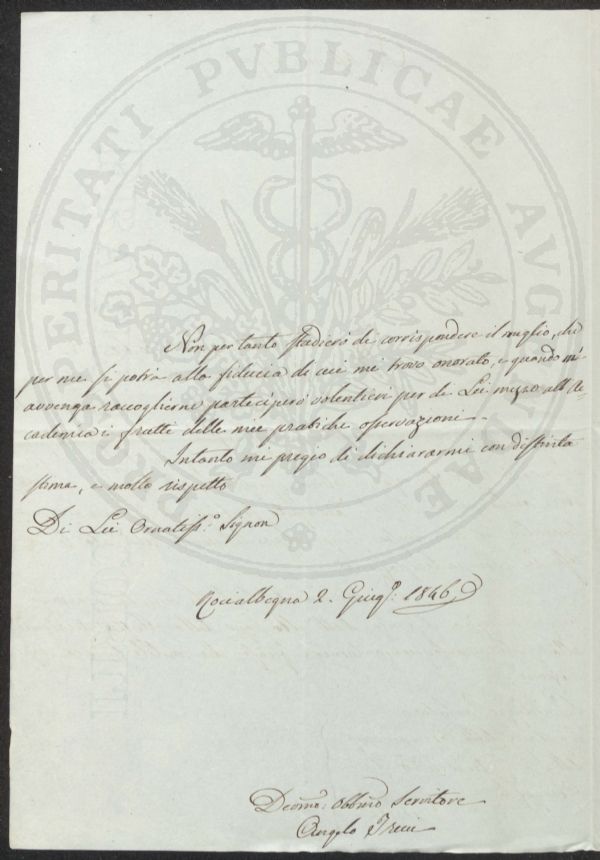 PROSPERITATI PVBLICAE AVGENDAE
Non per tanto studierò di corrispondere il meglio, che
per me si potrà alla fiducia di cui mi trovo onorato, e quando mi
avvenga raccoglierne parteciperò volentieri per di Lei mezzo all'Ac-
cademia i frutti delle mie pratiche osservazioni.
Intanto mi pregio di dichiararmi con distinta
stima, e molto rispetto
Di Lei Ornatiss.º Signore
Roccalbegna 2. Giugº: 1846
Devmo: Obbmo Servitore
Angelo